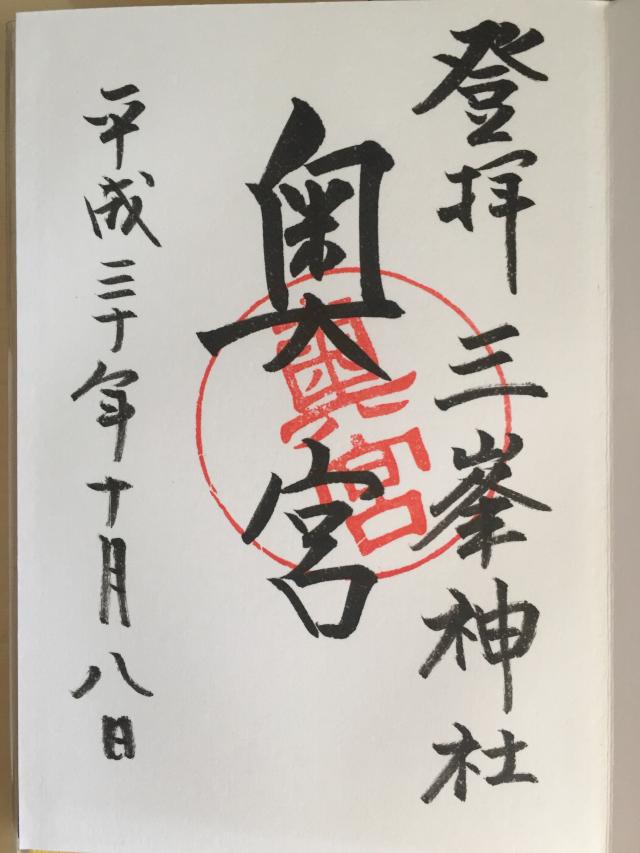 登拝 三峯神社
奥宮
奥宮
平成三十年十月八日